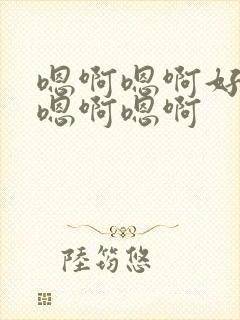 嗯啊嗯啊好
嗯啊嗯啊
陸筠悠